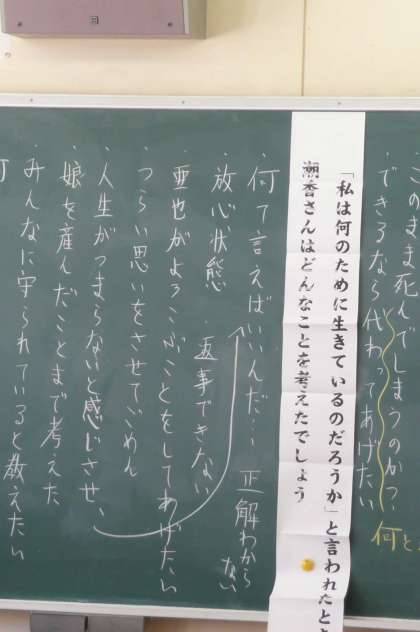 このまま死んでしまうのかつ
・できるなら代わってあげたい
何と
「私は何のために生きているのだろうか」と言われたと
潮香さんはどんなことを考えたでしょう
・何て言えばいいんだ… 正解わからない
・放心状態 返事できない
・亜也がよろこぶことをしてあげたい
・つらい思いをさせてごめん
・人生がつまらないと感じさせ、
娘を産んだことまで考えた
・みんなに守られていると教えたい